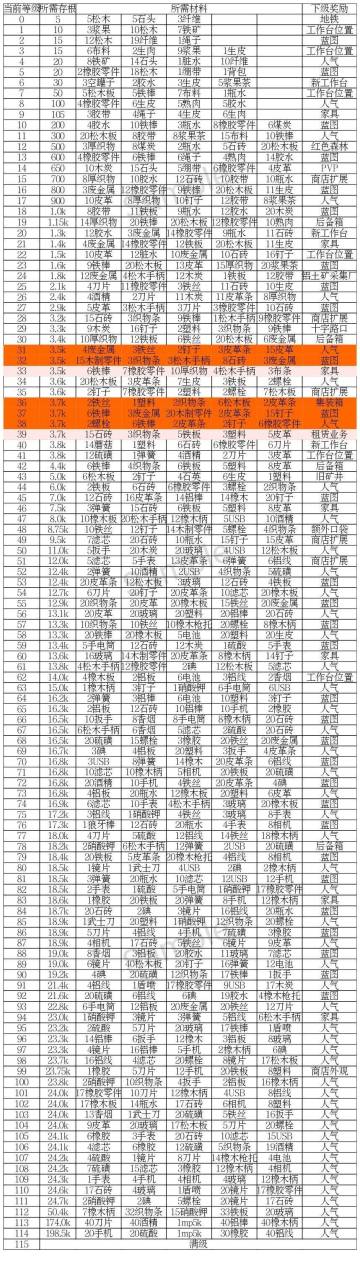 当前等级 所需存根 所需材料 下级奖励
0 5 5松木 5石头 3纤维 地铁
1 10 3浆果 10松木 7铁矿 工作台位置
2 15 12松木 19纤维 1绳子 蓝图
3 15 6布料 2生肉 9浆 1生皮 工作台位置
4 20 8铁矿 14石头 1脏水 10纤维 人气
5 20 2橡胶零件 18松木 1绷带 1背包 蓝图
6 30 3空罐子 2胶水 3生皮 5浆果茶 新工作台
7 50 5松木板 5铁棒 7布料 1瓶水 工作台位置
8 100 4橡胶零件 6生皮 5熟肉 5胶水 人气
9 105 3胶带 4绳子 4生皮 6生肉 家具
10 200 4胶水 3织物条 2瓶水 8橡胶零件 6煤炭 蓝图
11 300 20松木板 8胶带 8浆果茶 15布料 10铁棒 人气
12 500 3厚织物 8煤炭 2瓶水 5石砖 20松木板 红色森林
13 600 4橡胶零件 6铁棒 6绳子 4熟肉 14胶水 蓝图
14 650 10木炭 15石头 5绷带 6橡胶零件 4皮革 PVP
15 700 8厚织物 10铁板 12石砖 10胶带 10瓶水 商店扩展
16 800 3废金属 12橡胶零件 9铁棒 20松木板 11生皮 蓝图
17 900 10皮革 8厚织物 10钉子 12胶带 8浆果茶 人气
18 1.0k 8胶带 11铁板 9瓶水 12胶水 20木炭 蓝图
19 1.15k 14厚织物 20铁棒 20松木板 12橡胶零件 10熟肉 后备箱
20 1.3k 12胶水 3废金属 14橡胶零件 9瓶水 11石砖 新工作台
21 1.4k 4废金属 14橡胶零件 12铁板 20松木板 11生皮 家具
22 1.5k 10皮革 12脏水 10废金属 10石砖 16钉子 工作台位置
23 1.6k 9铁棒 20松木板 13皮革 15厚织物 20浆果茶 蓝图
24 1.8k 12废金属 4松木手柄 12木炭 1铁板 12胶带 铝土矿采集厂
25 2.1k 4刀片 11橡胶零件 3铁丝 11石砖 10生皮 蓝图
26 2.4k 4酒精 2刀片 11木炭 11皮革条 8厚织物 人气
27 2.9k 5皮革 3松木手柄 3刀片 3橡胶零件 10石砖 蓝图
28 3.2k 5石砖 3织物条 9铁棒 1松木手柄 9橡胶零件 商店扩展
29 3.3k 9木炭 16钉子 2塑料 3织物条 9铁棒 十字路口
30 3.4k 10厚织物 12铁棒 6铁丝 20松木板 6废金属 后备箱
31 3.5k 4废金属 3铁丝 2钉子 3皮革条 15皮革 人气
32 3.5k 15木制零件 3织物条 3松木手柄 8石砖 3废金属 蓝图
33 3.5k 6铁棒 7橡胶零件 10厚织物 4松木手柄 3布条 家具
34 3.6k 20松木板 3皮革条 7生皮 3铁板 2螺栓 人气
35 3.6k 2钉子 7橡胶零件 2塑料 2螺栓 7松木板 商店扩展
36 3.7k 2铁丝 1塑料 2织物条 6松木板 2皮革条 集装箱
37 3.7k 6铁棒 3废金属 20木制零件 2皮革条 15钉子 蓝图
38 3.7k 2螺栓 6铁棒 2皮革条 2钉子 6橡胶零件 人气
39 3.7k 15石砖 3织物条 5铁板 3塑料 5皮革 租赁业务
40 3.8k 14蘑菇 1塑料 6石砖 6橡胶零件 6刀片 新工作台
41 3.8k 12硫磺 1弹簧 4酒精 2刀片 3皮革 工作台位置
42 4.4k 6铁棒 10织物条 6铁板 5塑料 8皮革 后备箱
43 5.0k 6松木 2钉子 4石英 6生皮 1塑料 旧矿井
44 6.0k 2铁板 6石砖 6橡胶零件 5螺栓 2织物条 人气
45 7.0k 12石砖 16皮革条 14铝棒 14橡木 20钉子 蓝图
46 7.5k 3弹簧 15石砖 6铁板 5塑料 8皮革 家具
47 8.0k 10橡木板 20松木手柄 12橡木柄 5USB 10酒精 人气
48 8.75k 10铁丝 12钉子 14木制零件 5螺栓 4织物条 额外口袋
49 9.5k 7滤芯 20石砖 10瓶水 15钉子 15皮革 商店扩展
50 11.0k 5扳手 20木炭 20玻璃 4USB 12松木板 人气
51 12.0k 5滤芯 5手表 13皮革条 5弹簧 6铝线 商店扩展
52 12.4k 2弹簧 10酒精 2USB 4织物条 5硫磺 人气
53 12.4k 20皮革条 12松木板 3玻璃 12石砖 4铁板 蓝图
54 12.7k 6刀片 20钉子 20皮革条 10滤芯 20橡木板 人气
55 12.9k 20织物条 20皮革 20橡木板 15铁丝 20废金属 蓝图
56 13.1k 20皮革 20玻璃 20塑料 20铝棒 20石砖 人气
57 13.3k 10织物条 10铁丝 10橡木枪托 20螺栓 8橡木柄 蓝图
58 13.3k 20铁棒 20橡木板 5电池 20塑料 20生皮 人气
59 13.4k 5手电筒 12石砖 12木炭 1硫酸 5手表 蓝图
60 13.6k 16玻璃 14木制零件 20皮革条 8橡木柄 14钉子 家具
61 13.8k 4松木手柄 12橡胶零件 2碘 12松木板 5滤芯 人气
62 14.0k 4橡木板 2铝板 6电池 3铝线 2香烟 工作台位置
63 15.0k 1橡木柄 3钉子 1硝酸钾 6手电筒 6USB 人气
64 16.2k 2弹簧 3铝棒 6电池 10塑料 3钉子 蓝图
65 16.3k 2铝板 12石砖 10铝棒 10手机 2橡胶 人气
66 16.5k 10扳手 8香烟 8手电筒 8橡木柄 20石砖 蓝图
67 16.5k 6松木手柄 6香烟 5滤芯 2硫酸 20石砖 人气
68 16.5k 20硫磺 15螺栓 3橡胶 20铁丝 20废金属 蓝图
69 16.7k 3碘 4铝板 20塑料 3扳手 4皮革条 人气
70 16.8k 3USB 8弹簧 14橡木 20皮革条 6铝线 蓝图
71 16.8k 10滤芯 10橡木柄 5相机 20铁板 20硫磺 人气
72 16.8k 20酒精 10手机 20塑料 4铁丝 20皮革条 4碘 蓝图
73 16.8k 4铝板 20瓶水 20橡木板 20塑料 6皮革 人气
74 16.9k 6滤芯 10手表 4松木手柄 3玻璃 20橡木板 蓝图
75 17.2k 3铝线 1硝酸钾 4铁丝 3玻璃 8手表 人气
76 17.3k 1狼牙棒 12石砖 20瓶水 4手表 8相机 蓝图
77 18.0k 4刀片 5硫酸 12铝线 14铁丝 18橡木柄 人气
78 18.2k 2硝酸钾 6松木手柄 12弹簧 2USB 20硫磺 后备箱
79 18.4k 20铁板 5皮革条 20橡木枪托 4铝线 8相机 蓝图
80 18.5k 1镜片 1武士刀 4USB 2碘 2橡木柄 人气
81 18.5k 3弹簧 20瓶水 10滤芯 12USB 12手机 蓝图
82 18.5k 2手表 1硫酸 5手电筒 1硝酸钾 17橡胶零件 人气
83 18.6k 1橡胶 20铁板 20弹簧 8手机 12橡木柄 家具
84 18.7k 20石砖 2碘 3镜片 16铝线 20瓶水 蓝图
85 18.9k 1武士刀 20塑料 1硝酸钾 12织物条 20螺栓 人气
86 18.9k 5刀片 4铝线 4手机 7硫磺 3橡胶 蓝图
87 18.9k 4相机 17石砖 5铁丝 6镜片 9皮革 人气
88 19.0k 8香烟 3铝板 20胶水 11玻璃 7滤芯 蓝图
89 19.0k 6橡胶 40松木板 20钉子 16弹簧 12电池 人气
90 19.2k 4碘 20硫磺 12织物条 17铁棒 1扳手 蓝图
91 21.4k 6铝线 1盾喷 17橡胶零件 9USB 17木炭 人气
92 21.6k 20硫磺 6铝线 6碘 19胶水 4橡木枪托 蓝图
93 22.8k 6手电筒 12铝板 20废金属 20铁丝 12刀片 人气
94 23.0k 1硝酸钾 3镜片 3弹簧 5铝线 6松木手柄 家具
95 23.2k 2硫酸 5刀片 20玻璃 17铁棒 1盾喷 人气
96 23.3k 14铝棒 6扳手 12橡木 3铝板 8玻璃 人气
97 23.3k 4镜片 16铝棒 5手机 2橡木柄 6碘 人气
98 23.7k 16铝线 4滤芯 20螺栓 8镜片 17松木板 人气
99 23.75k 1橡胶 5刀片 12手机 20铁板 8塑料 商店外观
100 23.8k 2硝酸钾 10织物条 4扳手 2铝板 16橡木柄 人气
101 24.0k 17橡胶零件 10刀片 12橡木柄 4USB 8铝线 人气
102 24.0k 17橡木板 14瓶水 17石砖 6相机 8塑料 人气
103 24.0k 13香烟 1武士刀 20硫磺 5铁丝 16扳手 人气
104 24.0k 9皮革 20玻璃 17松木板 5刀片 20螺栓 人气
105 24.1k 6橡胶 3手表 20石砖 10滤芯 15USB 人气
106 24.1k 4滤芯 6橡胶 12硫磺 5织物条 19酒精 人气
107 24.2k 4硫酸 1镜片 8刀片 14橡木枪托 4电池 人气
108 24.2k 7硫磺 15滤芯 3橡胶 12橡木柄 4相机 人气
109 24.3k 1手表 4手机 4相机 4玻璃 12橡木柄 人气
110 24.6k 17石砖 4玻璃 1盾喷 20镜片 17橡胶零件 人气
111 24.7k 2硝酸钾 20碘 5螺栓 20镜片 17石砖 人气
112 50.4k 7橡木柄 32织物条 15硝酸钾 33铁板 40玻璃 人气
113 174.0k 40刀片 40酒精 1mp5k 40铝棒 40橡木柄 人气
114 198.5k 20手机 20硫酸 1mp5k 30橡胶 40铝线 人气
115 满级